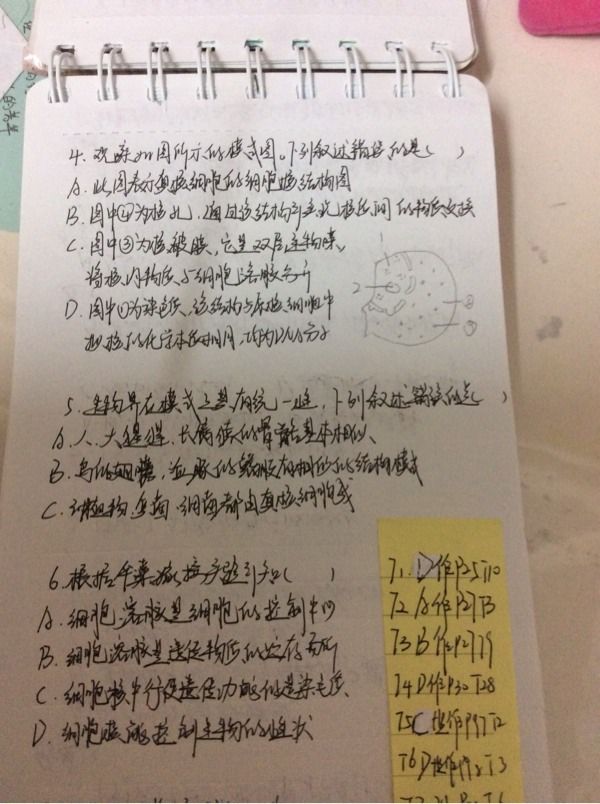 4. 观察如图所示的模式图。下列叙述错误的是( )
A. 此图表示真核细胞的细胞核结构图
B. 图中④为核孔,通过该结构实现核质间的物质交换
C. 图中③为核被膜,它是双层生物膜,
将核内物质与细胞溶胶分开
D. 图中①为染色质,该结构与原核细胞中
拟核的化学本质相同,均为DNA分子
1
2
④
③
5. 生物界在模式上具有统一性,下列叙述错误的是( )
A. 人、大猩猩、长臂猿的骨骼基本相似
B. 鸟的翅膀,的鳍有相似的结构模式
C. 动植物、真菌、细菌都由真核细胞组成
6. 根据伞藻嫁接实验可知( )
A. 细胞溶胶是细胞的控制中心
B. 细胞溶胶是遗传物质的贮存场所
C. 细胞核中行使遗传功能的是染色质
D. 细胞核能控制生物的性状
T1. D 作P25T10
T2 A作P27T3
T3 B 作P27T9
T4 D作P30 T28
T5 C 作P97T2
T6 D 作P98T3